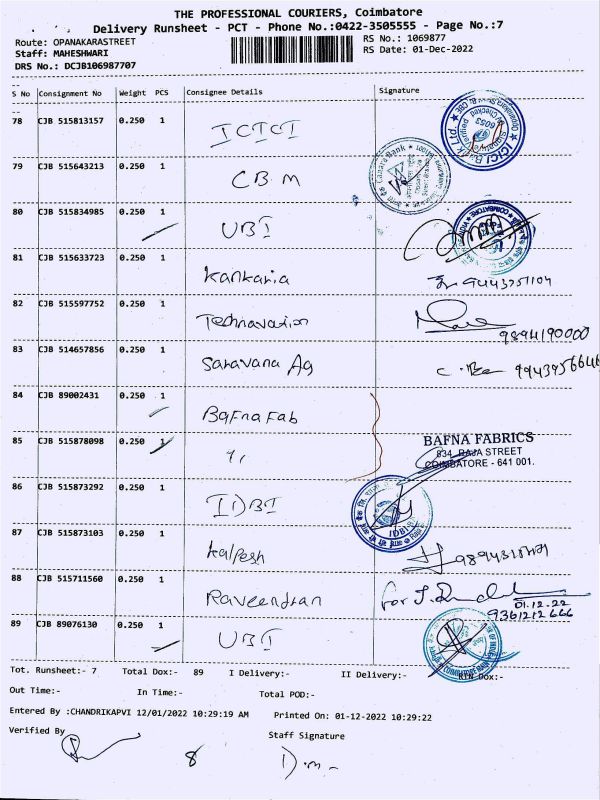 THE PROFESSIONAL COURIERS, Coimbatore
Delivery Runsheet - PCT - Phone No.:0422-3505555 - Page No.:7
Route: OPANAKARASTREET
RS No.: 1069877
Staff: MAHESHWARI
RS Date: 01-Dec-2022
DRS No.: DCJB106987707
S No Consignment No Weight PCS Consignee Details Signature
78 CJB 515813157 0.250 1 ICICI
79 CJB 515643213 0.250 1 CBM
80 CJB 515834985 0.250 1 UBI
81 CJB 515633723 0.250 1 Kankaria
82 CJB 515597752 0.250 1 Technovation
9894190000
83 CJB 514657856 0.250 1 Saravana Ag
84 CJB 89002431 0.250 1 Bafna Fab
85 CJB 515878098 0.250 1
BAFNA FABRICS
834, RAJA STREET
COIMBATORE - 641 001.
86 CJB 515873292 0.250 1 IDBI
87 CJB 515873103 0.250 1 Kalpesh
88 CJB 515711560 0.250 1 Raveendran for
01.12.22
9361212666
89 CJB 89076130 0.250 1 UBI
Tot. Runsheet:- 7 Total Dox:- 89 I Delivery:- II Delivery:- RTN Dox:-
Out Time:- In Time:- Total POD:-
Entered By :CHANDRIKAPVI 12/01/2022 10:29:19 AM Printed On: 01-12-2022 10:29:22
Verified By Staff Signature
8